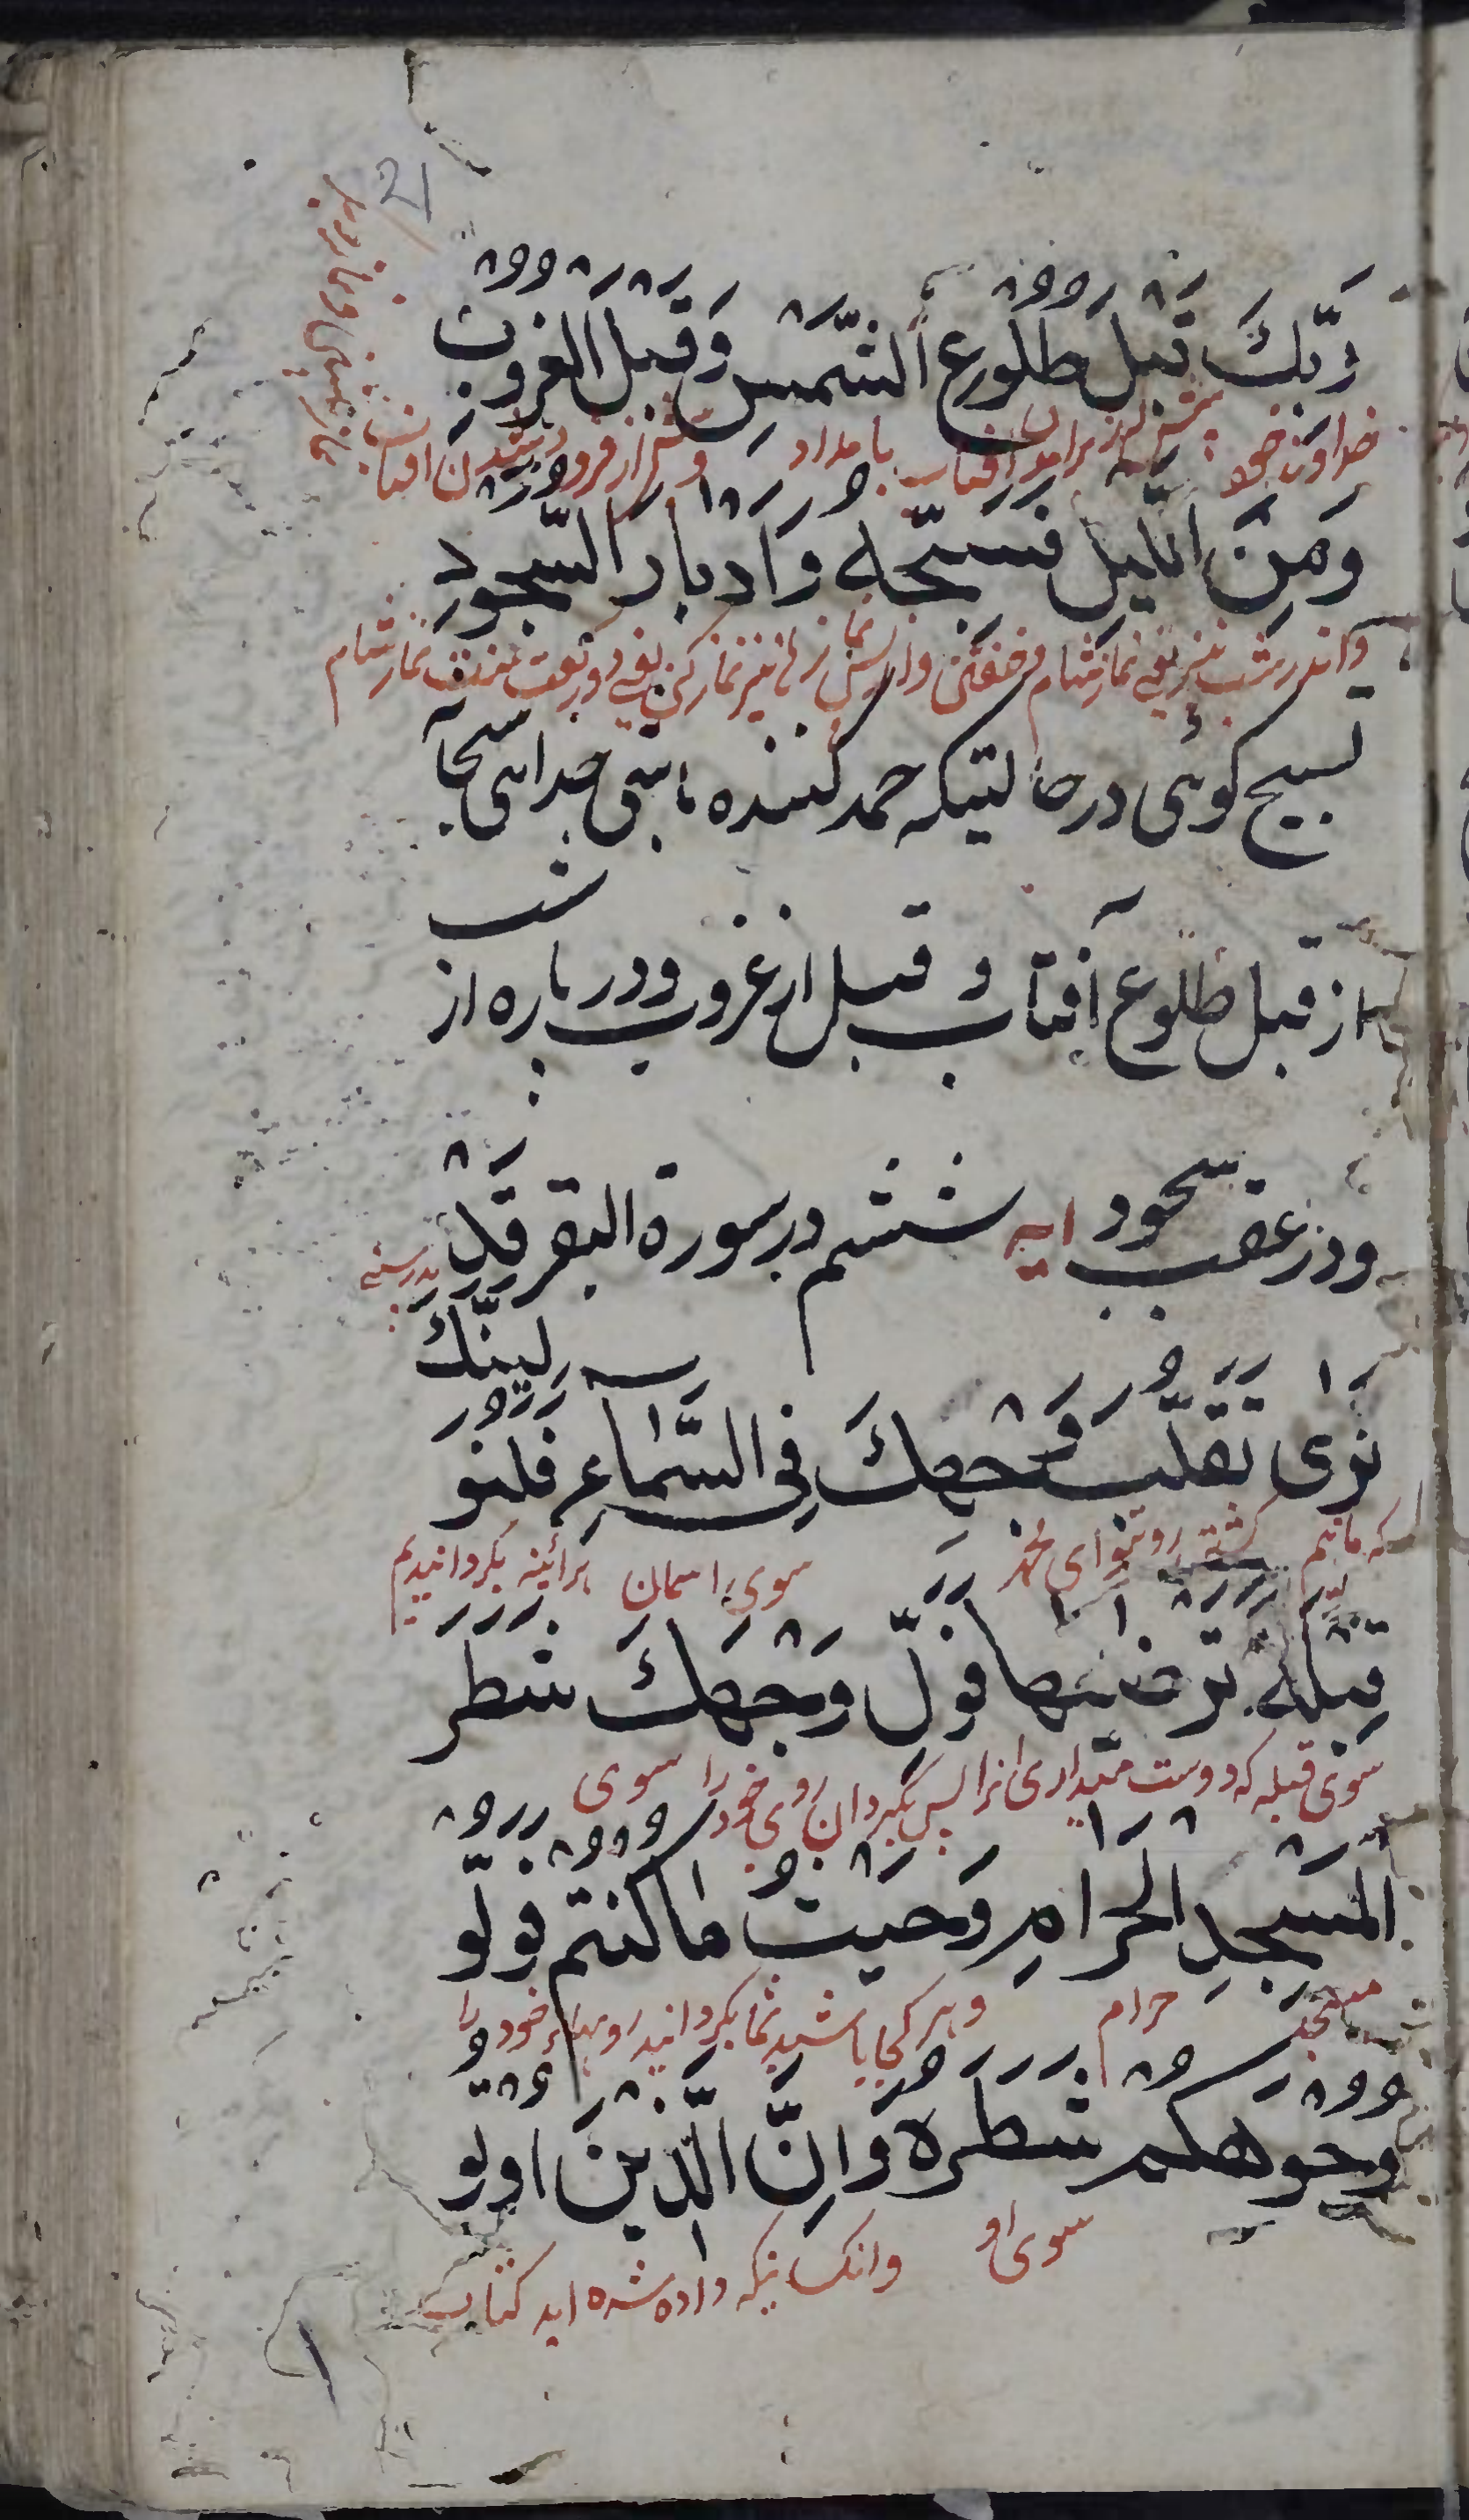 21
رَبِّكَ قَبْلَ طُلُوعِ الشَّمْسِ وَقَبْلَ الْغُرُوبِ
خداوند خود پیش از برامدن افتاب بامداد و پیش از فرو شدن افتاب
وَمِنَ اللَّيْلِ فَسَبِّحْهُ وَاَدْبَارَ السُّجُودِ
واندر شب نیز یعنی نماز شام و خفتن و از پس نماز نیز نماز کن یعنی دو رکعت نماز شام
تسبیح کوئی در حالتیکه حمد کننده باشی خدایی
از قبل طلوع آفتاب و قبل از غروب و در باره از شب
ودر عقب سجود ایه ششم در سورة البقر قَدْ
بدرستی
نَرٰى تَقَلُّبَ وَجْهِكَ فِي السَّمَاءِ فَلَنُوَلِّيَنَّكَ
که مابینیم کشتن روی تو ای محمد سوی اسمان هرائینه بکردانیدیم
قِبْلَةً تَرْضٰيهَا فَوَلِّ وَجْهَكَ شَطْرَ
سوی قبله که دوست میداری انرا پس بگردان روی خود را سوی
الْمَسْجِدِ الْحَرَامِ وَحَيْثُ مَا كُنْتُمْ فَوَلُّو
مسجد حرام و هر کجا باشید شما بکردانید رویهاء خود را
وُجُوهَكُمْ شَطْرَهُ وَاِنَّ الَّذِينَ اُوتُو
سوی او وانکسانیکه داده شده اند کتاب